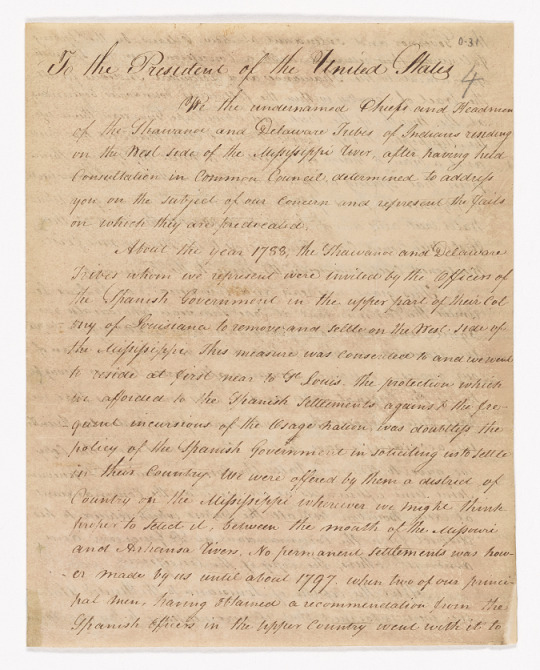 0-31
To the President of the United States
4
We the undernamed Chiefs and Headmen
of the Shawanoe and Delaware Tribes of Indians residing
on the West side of the Missisippi River, after having held
Consultation in Common Council, determined to address
you on the subject of our Concern and represent the facts
on which they are predicated.
About the year 1788, the Shawanoe and Delaware
Tribes whom we represent were invited by the Officers of
the Spanish Government in the upper part of their Col
ony of Louisiana to remove and settle on the West side of
the Missisippi. This measure was consented to and we went
to reside at first near to St. Louis. the protection which
we afforded to the Spanish Settlements against the fre-
quent incursions of the Osage nation was doubtless the
policy of the Spanish Government in soliciting us to settle
in their Country. We were offered by them a district of
Country on the Missisippi wherever we might think
proper to select it, between the mouth of the Missouri
and Arkansa Rivers. No permanent settlements was how-
er made by us until about 1797. when two of our princi-
pal men, having obtained a recommendation from the
Spanish Officers in the upper Country went with it to